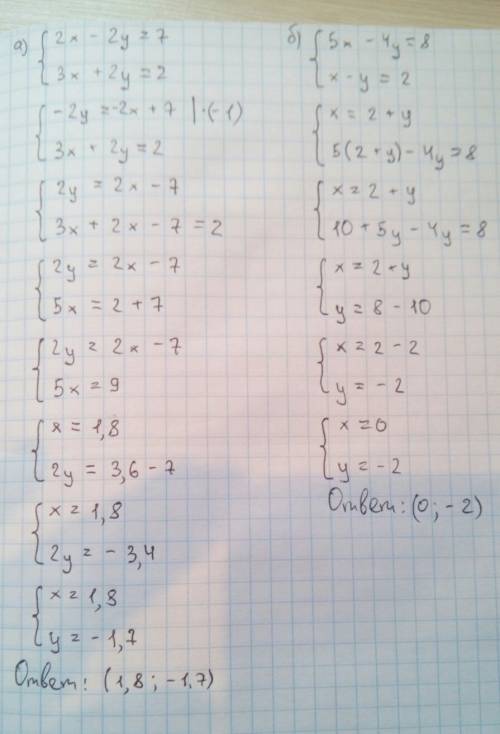 а) { 2x - 2y = 7
3x + 2y = 2
{ -2y = -2x + 7 | ·(-1)
3x + 2y = 2
{ 2y = 2x - 7
3x + 2x - 7 = 2
{ 2y = 2x - 7
5x = 2 + 7
{ 2y = 2x - 7
5x = 9
{ x = 1,8
2y = 3,6 - 7
{ x = 1,8
2y = - 3,4
{ x = 1,8
y = - 1,7
Ответ: (1,8 ; -1,7)
б) { 5x - 4y = 8
x - y = 2
{ x = 2 + y
5(2 + y) - 4y = 8
{ x = 2 + y
10 + 5y - 4y = 8
{ x = 2 + y
y = 8 - 10
{ x = 2 - 2
y = - 2
{ x = 0
y = - 2
Ответ: (0 ; - 2)